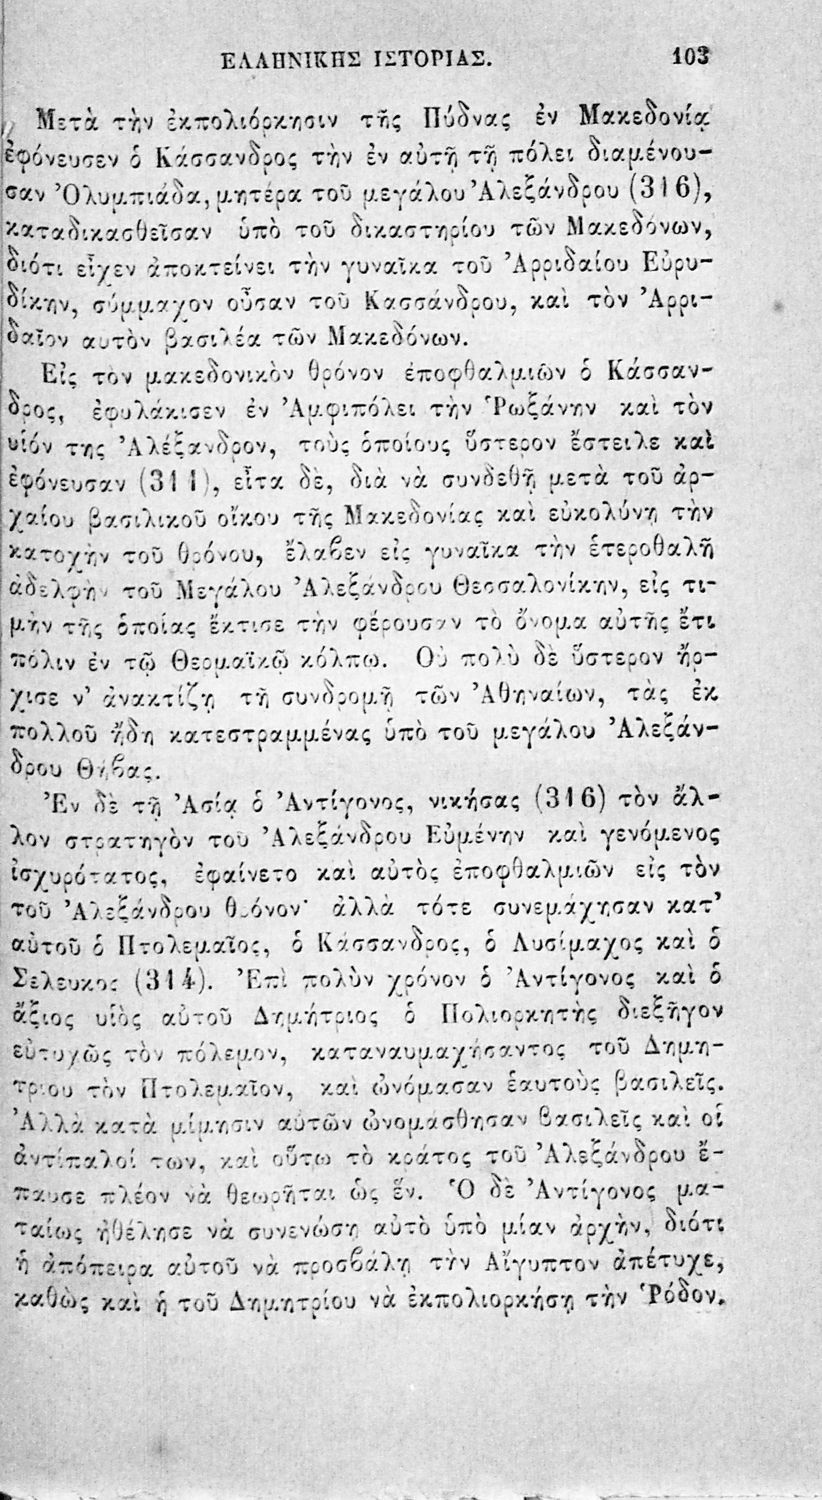 ΕΛΛΗΝΙΚΗΣ ΙΣΤΟΡΙΑΣ. 103
Μετὰ τὴν ἐκπολιόρκησιν τῆς Πύδνας ἐν Μακεδονίᾳ
ἐφόνευσεν ὁ Κάσσανδρος τὴν ἐν αὐτῇ τῇ πόλει διαμένου-
σαν Ὀλυμπιάδα, μητέρα τοῦ μεγάλου Ἀλεξάνδρου (316),
καταδικασθεῖσαν ὑπὸ τοῦ δικαστηρίου τῶν Μακεδόνων,
διότι εἶχεν ἀποκτείνει τὴν γυναῖκα τοῦ Ἀρριδαίου Εὐρυ-
δίκην, σύμμαχον οὖσαν τοῦ Κασσάνδρου, καὶ τὸν Ἀρρι-
δαῖον αυτὸν βασιλέα τῶν Μακεδόνων.
Εἰς τὸν μακεδονικὸν θρόνον ἐποφθαλμιῶν ὁ Κάσσαν-
δρος, ἐφυλάκισεν ἐν Ἀμφιπόλει τὴν Ῥωξάνην καὶ τὸν
υἱόν της Ἀλέξανδρον, τοὺς ὁποίους ὕστερον ἔστειλε καὶ
ἐφόνευσαν (311), εἶτα δὲ, διὰ νὰ συνδεθῇ μετὰ τοῦ ἀρ-
χαίου βασιλικοῦ οἴκου τῆς Μακεδονίας καὶ εὐκολύνῃ τὴν
κατοχὴν τοῦ θρόνου, ἔλαβεν εἰς γυναῖκα τὴν ἑτεροθαλῆ
ἀδελφὴν τοῦ Μεγάλου Ἀλεξάνδρου Θεσσαλονίκην, εἰς τι-
μὴν τῆς ὁποίας ἔκτισε τὴν φέρουσαν τὸ ὄνομα αὐτῆς ἔτι
πόλιν ἐν τῷ Θερμαϊκῷ κόλπῳ. Οὐ πολὺ δὲ ὕστερον ἤρ-
χισε ν' ἀνακτίζῃ τῇ συνδρομῇ τῶν Ἀθηναίων, τὰς ἐκ
πολλοῦ ἤδη κατεστραμμένας ὑπὸ τοῦ μεγάλου Ἀλεξάν-
δρου Θήβας.
Ἐν δὲ τῇ Ἀσίᾳ ὁ Ἀντίγονος, νικήσας (316) τὸν ἄλ-
λον στρατηγὸν τοῦ Ἀλεξάνδρου Εὐμένην καὶ γενόμενος
ἰσχυρότατος, ἐφαίνετο καὶ αὐτὸς ἐποφθαλμιῶν εἰς τὸν
τοῦ Ἀλεξάνδρου θρόνον· ἀλλὰ τότε συνεμάχησαν κατ'
αὐτοῦ ὁ Πτολεμαῖος, ὁ Κάσσανδρος, ὁ Λυσίμαχος καὶ ὁ
Σέλευκος (314). Ἐπὶ πολὺν χρόνον ὁ Ἀντίγονος καὶ ὁ
ἄξιος υἱὸς αὐτοῦ Δημήτριος ὁ Πολιορκητὴς διεξῆγον
εὐτυχῶς τὸν πόλεμον, καταναυμαχήσαντος τοῦ Δημη-
τρίου τὸν Πτολεμαῖον, καὶ ὠνόμασαν ἑαυτοὺς βασιλεῖς.
Ἀλλὰ κατὰ μίμησιν αὐτῶν ὠνομάσθησαν βασιλεῖς καὶ οἱ
ἀντίπαλοί των, καὶ οὕτω τὸ κράτος τοῦ Ἀλεξάνδρου ἔ-
παυσε πλέον νὰ θεωρῆται ὡς ἕν. Ὁ δὲ Ἀντίγονος μα-
ταίως ἠθέλησε νὰ συνενώσῃ αὐτὸ ὑπὸ μίαν ἀρχὴν, διότι
ἡ ἀπόπειρα αὐτοῦ νὰ προσβάλῃ τὴν Αἴγυπτον ἀπέτυχε,
καθὼς καὶ ἡ τοῦ Δημητρίου νὰ ἐκπολιορκήσῃ τὴν Ῥόδον.